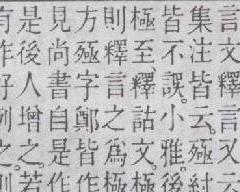 言文釋言又
集注皆云殛
皆不誤小雅後
極至釋詁文極
則釋言之為極
方殛字鄭皆作
見尚書自是作
是後人增之若
有作好列之則